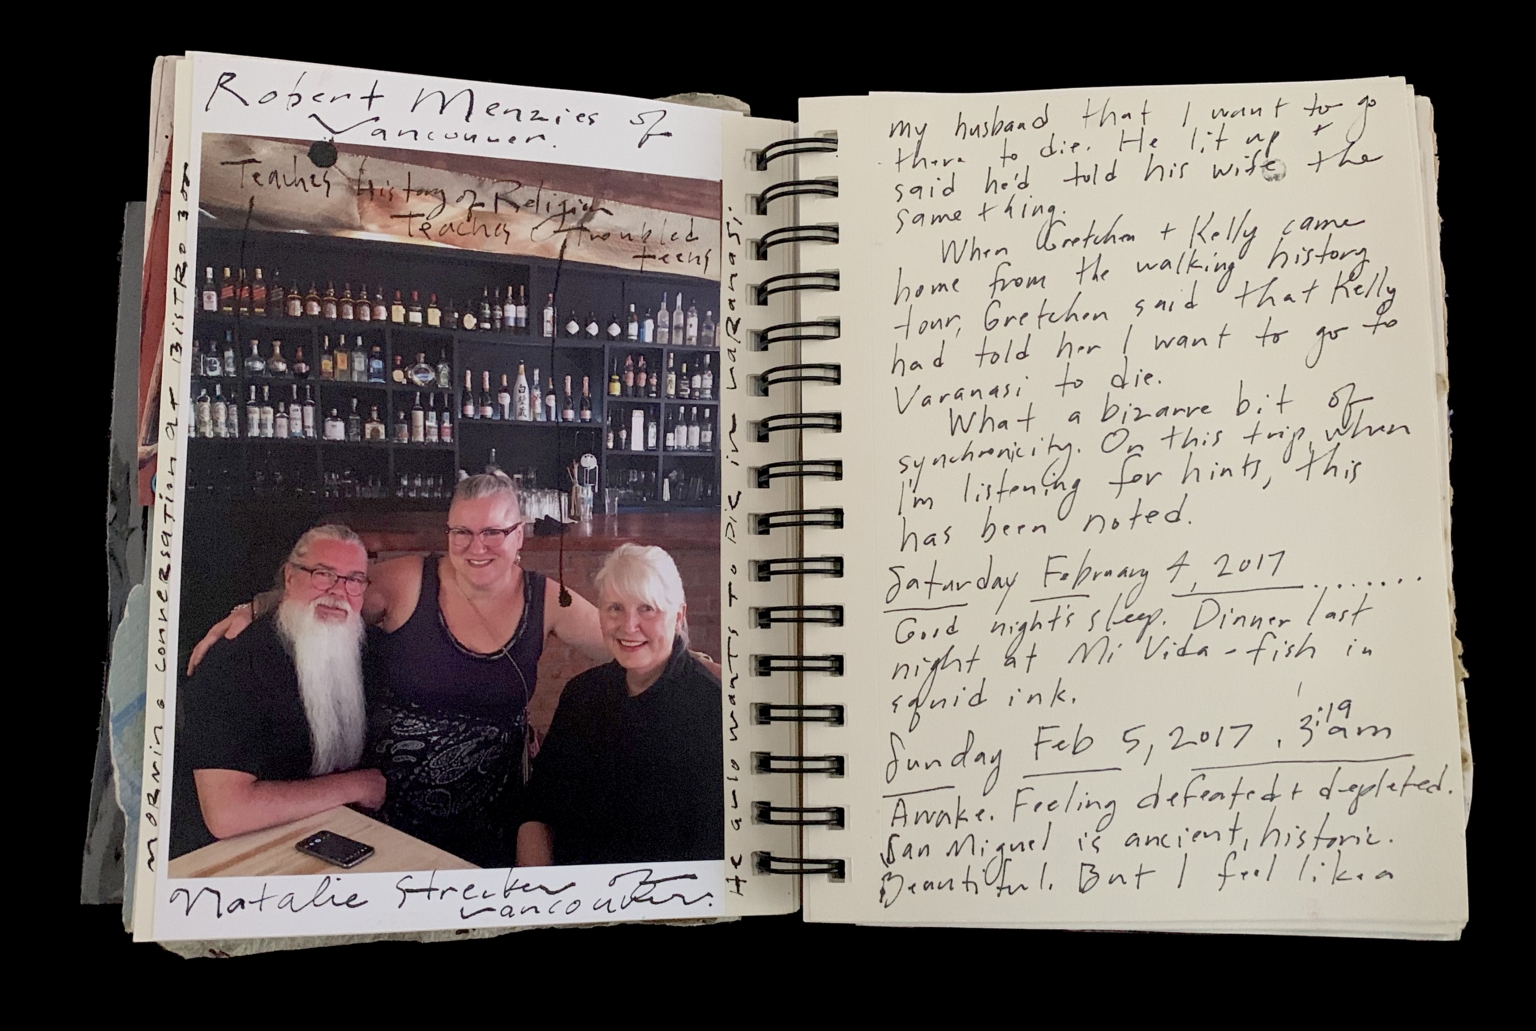 Robert Menzies of
Vancouver.
Teaches History of Religion
Teaches troubled
teens
MORNING CONVERSATION at BISTRO 30
Natalie Strecker of
Vancouver.
He also wants to Die in VaRanaSi.
my husband that I want to go
there to die. He lit up +
said he'd told his wife the
same thing.
When Gretchen + Kelly came
home from the walking history
tour, Gretchen said that Kelly
had told her I want to go to
Varanasi to die.
What a bizarre bit of
synchronicity. On this trip, when
I'm listening for hints, this
has been noted.
Saturday February 4, 2017 ........
Good night's sleep. Dinner last
night at Mi Vida - fish in
squid ink.
Sunday Feb 5, 2017. 3:19 am
Awake. Feeling defeated + depleted.
San Miguel is ancient, historic.
Beautiful. But I feel like a